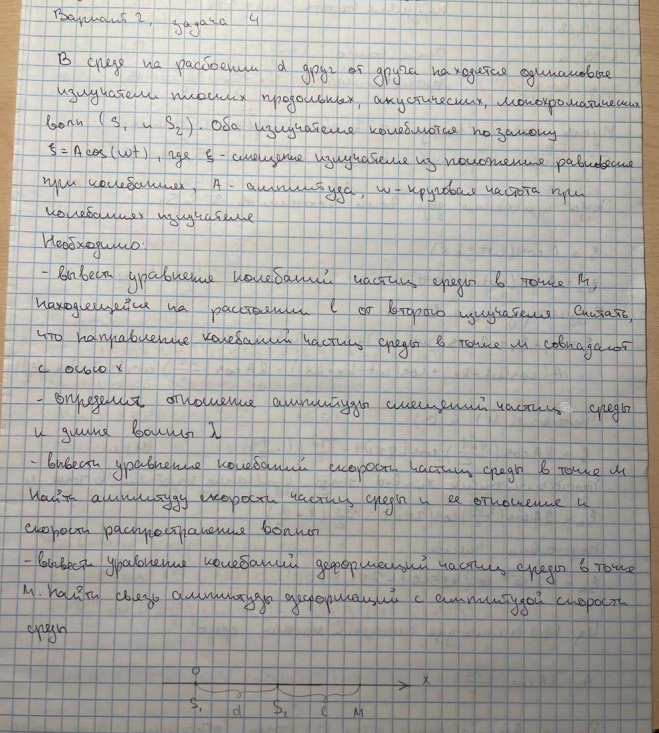 Вариант 2, задача 4
В среде на расстоянии d друг от друга находятся одинаковые
излучатели плоских продольных, акустических, монохроматических
волн (S₁ и S₂). Оба излучателя колеблются по закону
ξ = A cos(ωt), где ξ - смещение излучателя из положения равновесия
при колебаниях, A - амплитуда, ω - круговая частота при
колебаниях излучателя
Необходимо:
- вывести уравнение колебаний частиц среды в точке M,
находящейся на расстоянии l от второго излучателя. Считать,
что направление колебаний частиц среды в точке M совпадают
с осью x
- определить отношение амплитуды смещений частиц среды
к длине волны λ
- вывести уравнение колебаний скорости частиц среды в точке M
Найти амплитуду скорости частиц среды и ее отношение к
скорости распространения волны
- вывести уравнение колебаний деформаций частиц среды в точке
M. Найти связь амплитуды деформаций с амплитудой скорости
среды
0 x
S₁ d S₂ l M